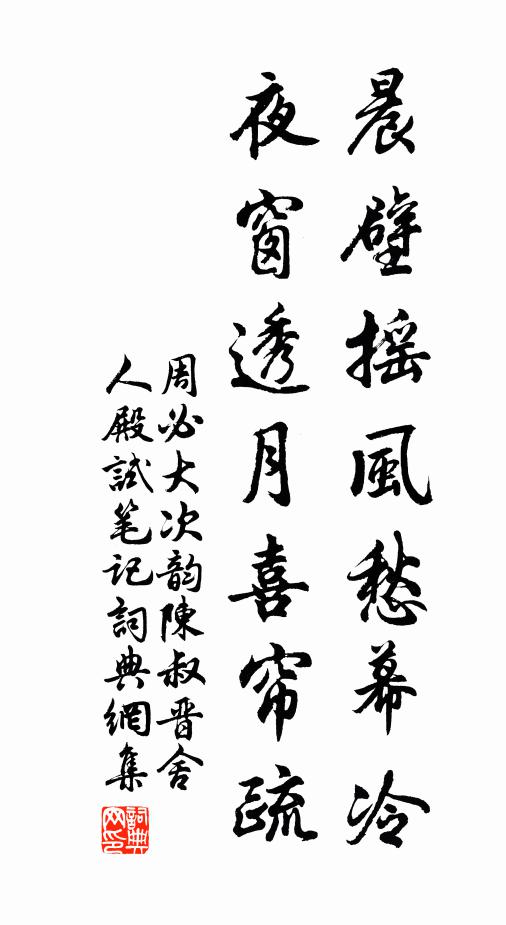 晨壁摇風愁幕冷
夜窗透月喜帘疏
周必大次韵陳叔晋舍
人殿試笔记詞典網集
詞典网印